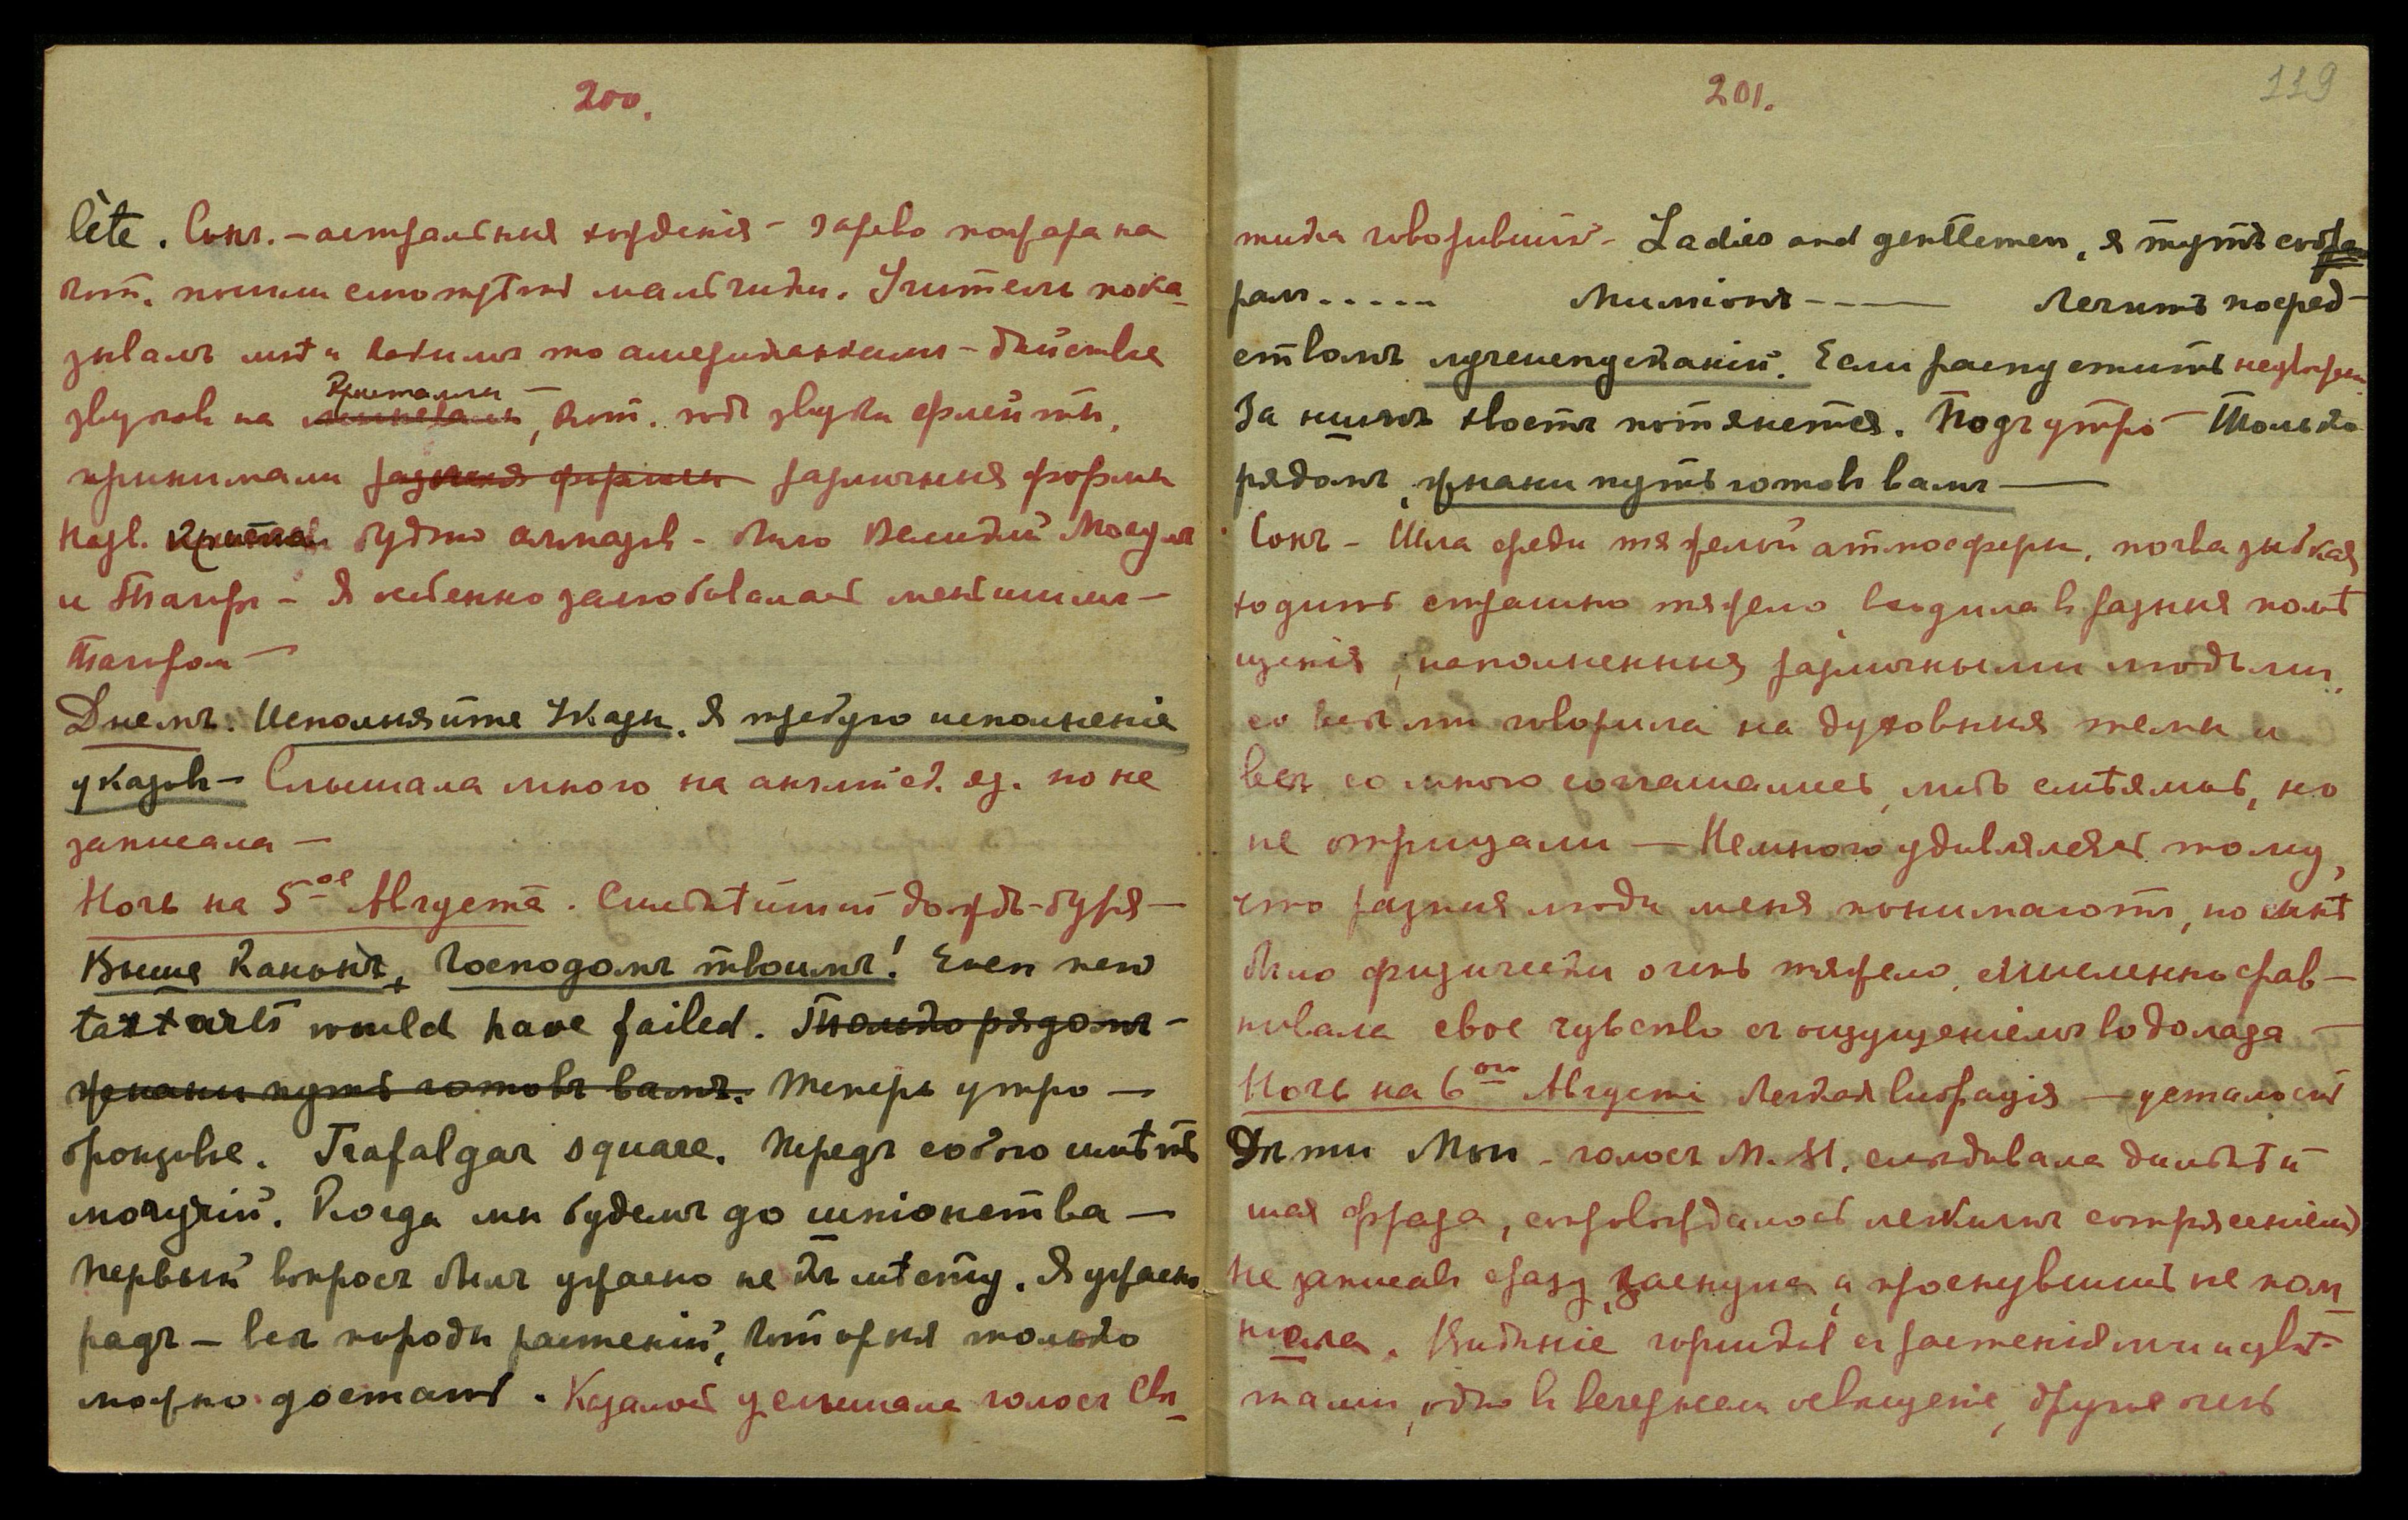 200.
lète. Сонъ. – астральныя хожденія – зарево пожара на
кот. пошли смотрѣть мальчики. Учитель пока-
зывалъ мнѣ и какимъ то американкамъ – дѣйствіе
звуковъ на Кристаллы –, кот. подъ звуки флейты,
принимали разныя формы различныя формы
Назв. будто алмазовъ – было Великій Моголъ
и Тагоръ – Я особенно залюбовалась меньшимъ –
Тагоромъ –
Днемъ. Исполняйте Указы. Я требую исполненіе
указовъ – Слышала много на англійск. яз. но не
записала –
Ночь на 5ое Августа. Сильнѣйшій дождь-буря –
Выше Каньонъ, Господомъ твоимъ! Even new
tart arts would have failed. Только рядомъ –
жнани путь готовъ вамъ. Теперь утро –
бронзовые. Trafalgar square. Передъ собою имѣть
могучій. Когда мы будемъ до шпіонства –
Первый вопросъ былъ ужасно не къ мѣсту. Я ужасно
радъ – всѣ породы растеній, которыя только
можно достать. Казалось услышала голосъ Свѣ-
201.
119
тика говорившій – Ladies and gentlemen, я тутъ собра
ралъ..... Милліонъ ---- Лечить посред-
ствомъ лучеиспусканій. Если распустить
За нимъ хвостъ потянется. Подъ утро – Только
рядомъ, жнани путь готовъ вамъ –
Сонъ – Шла среди тяжелой атмосферы, почва зыбкая
ходить страшно тяжело, входила въ разныя помѣ
щенія, наполненныя различными людьми,
со всѣми говорила на духовныя темы и
всѣ со мною соглашались, либо смѣялись, но
не отрицали – Немного удивлялась тому,
что разныя люди меня понимаютъ, но мнѣ
было физически очень тяжело, мысленно срав-
нивала свое чувство съ ощущеніемъ водолаза –
Ночь на 6ое Августа Легкая вибрація – усталость
Дѣти Мои – голосъ М. М. слѣдовала дальнѣй
шая фраза, сопровождалось легкимъ сотрясеніемъ
Не записавъ сразу, заснула, и проснувшись не пом-
нила. Видѣніе горшковъ съ растеніями и цвѣ-
тами, одно въ вечернемъ освѣщеніе, другія очень